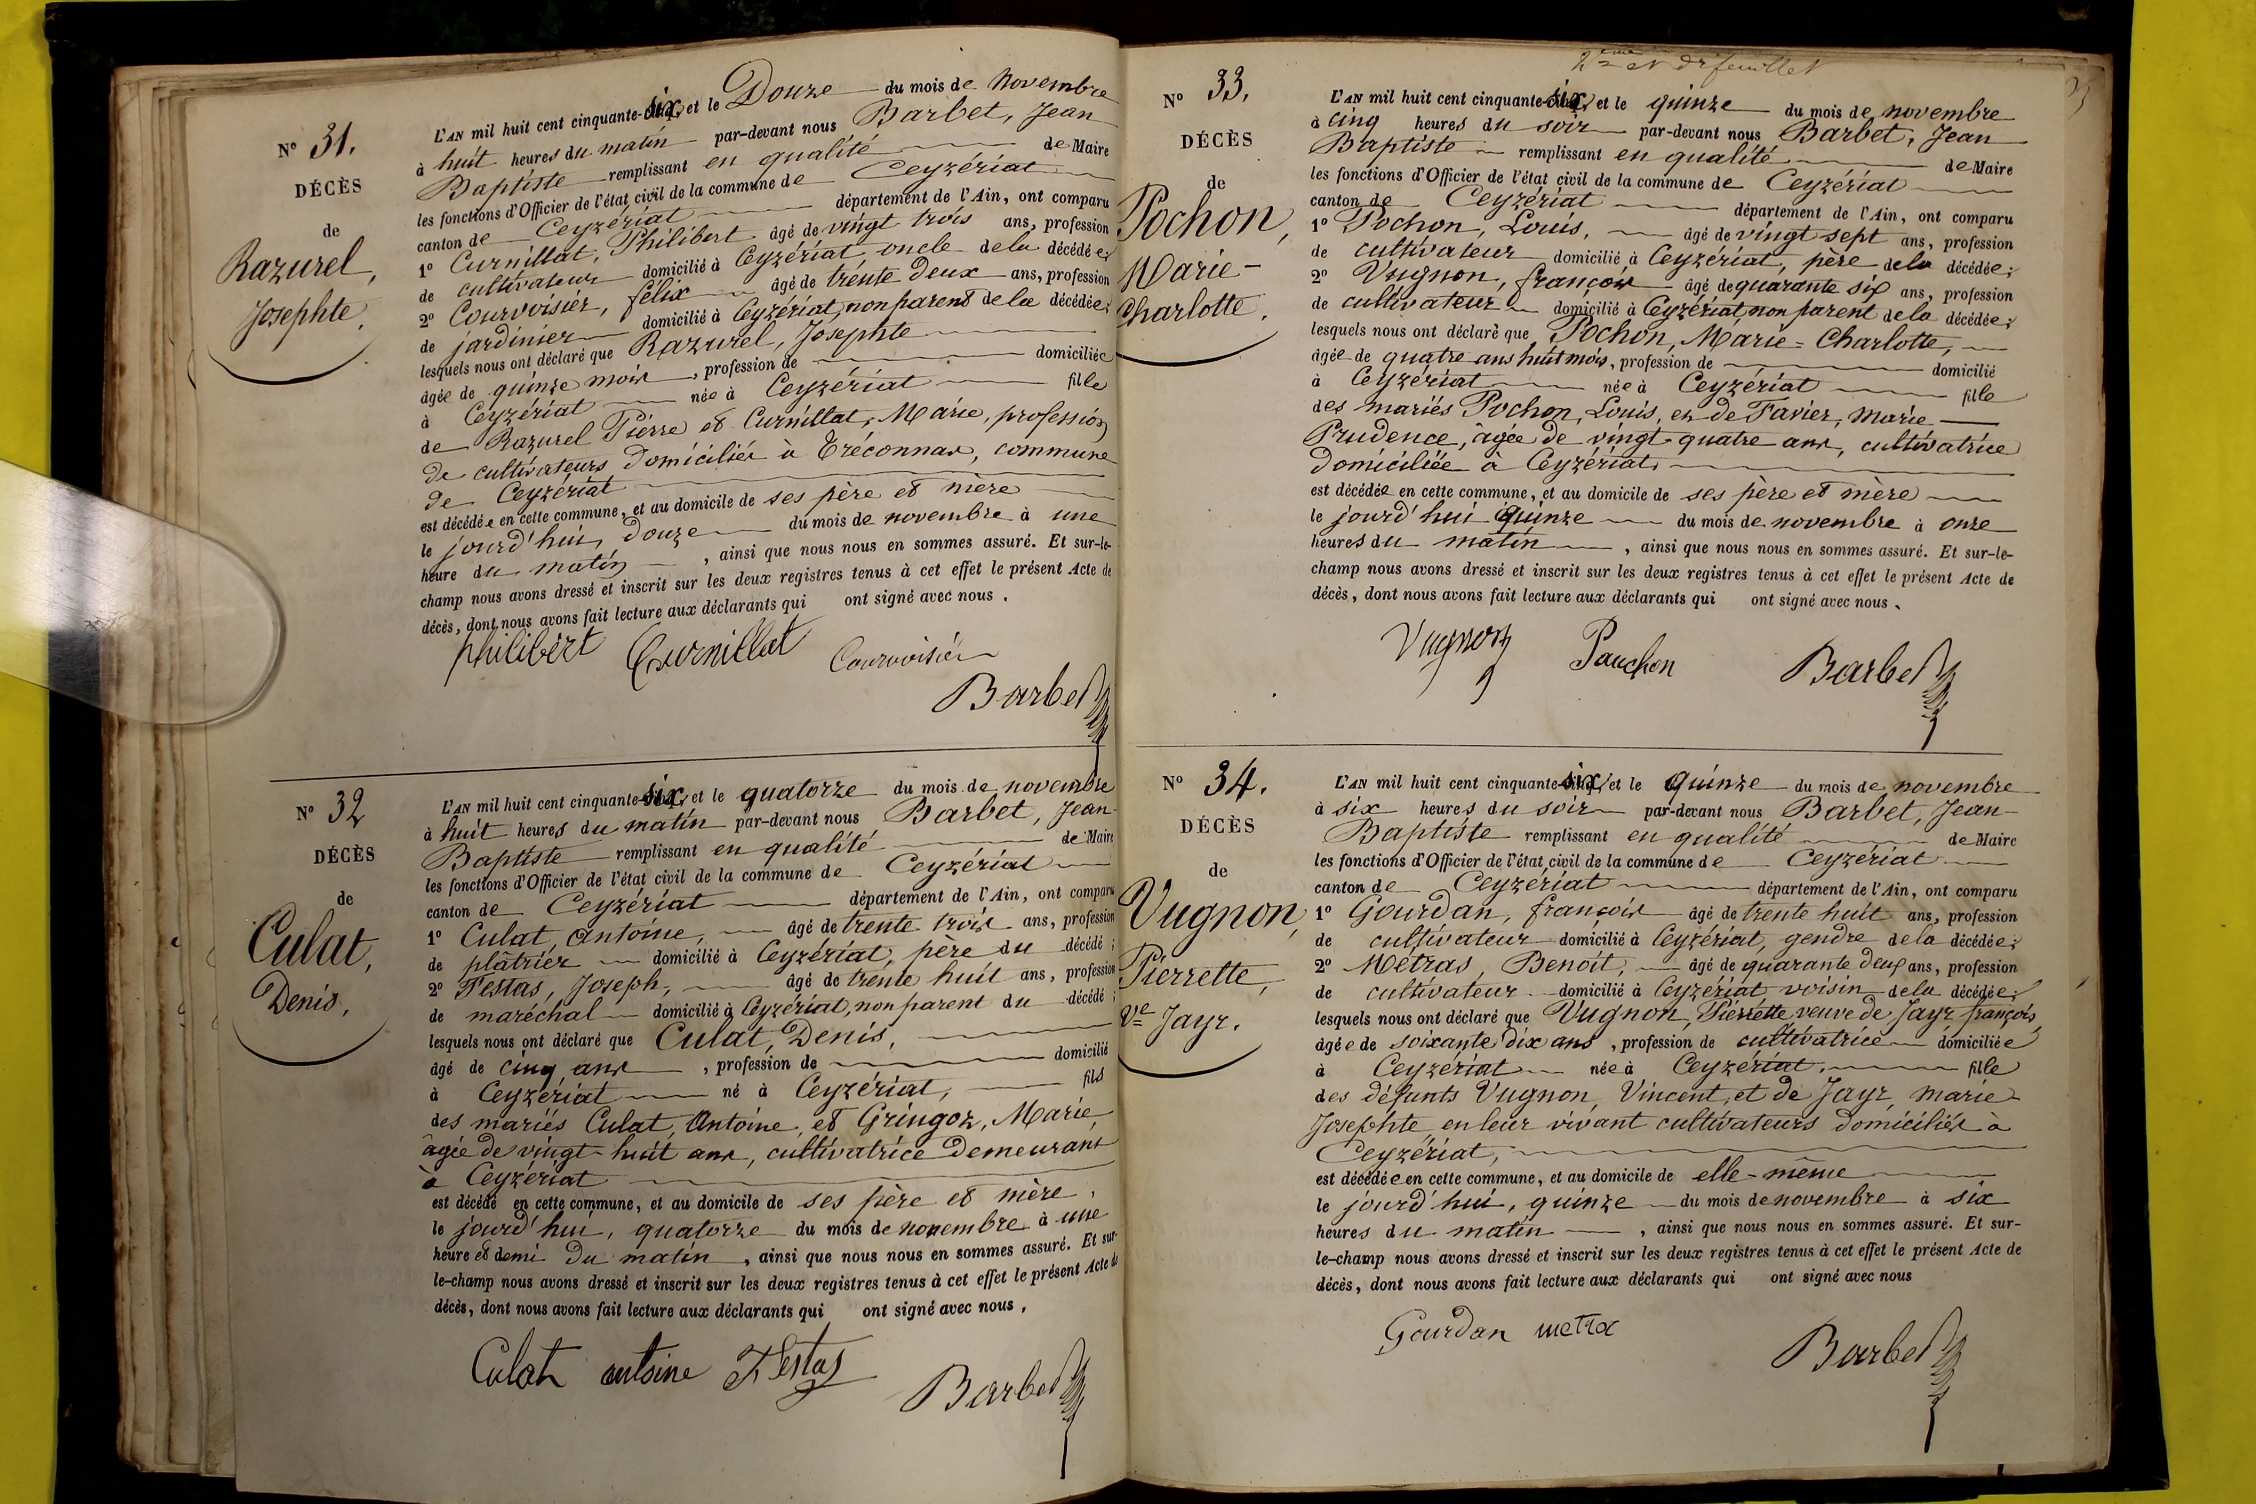 N° 31.
DÉCÈS
de
Razurel,
Josephte.
L'AN mil huit cent cinquante-six, et le Douze du mois de novembre
à huit heures du matin par-devant nous Barbet, Jean
Baptiste remplissant en qualité de Maire
les fonctions d'Officier de l'état civil de la commune de Ceyzériat
canton de Ceyzériat département de l'Ain, ont comparu
1° Curnillat, Philibert âgé de vingt trois ans, profession
de cultivateur domicilié à Ceyzériat, oncle de la décédée;
2° Courvoisier, félix âgé de trente deux ans, profession
de jardinier domicilié à Ceyzériat, non parent de la décédée;
lesquels nous ont déclaré que Razurel, Josephte
âgée de quinze mois, profession de domiciliée
à Ceyzériat née à Ceyzériat fille
de Razurel Pierre et Curnillat, Marie, profession
de cultivateurs domiciliés à Tréconnas, commune
de Ceyzériat
est décédée en cette commune, et au domicile de ses père et mère
le jourd'hui, douze du mois de novembre à une
heure du matin, ainsi que nous nous en sommes assuré. Et sur-le-
champ nous avons dressé et inscrit sur les deux registres tenus à cet effet le présent Acte de
décès, dont nous avons fait lecture aux déclarants qui ont signé avec nous.
philibert Curnillat Courvoisier
Barbet
N° 32
DÉCÈS
de
Culat,
Denis.
L'AN mil huit cent cinquante-six, et le quatorze du mois de novembre
à huit heures du matin par-devant nous Barbet, Jean-
Baptiste remplissant en qualité de Maire
les fonctions d'Officier de l'état civil de la commune de Ceyzériat
canton de Ceyzériat département de l'Ain, ont comparu
1° Culat, Antoine, âgé de trente trois ans, profession
de plâtrier domicilié à Ceyzériat, père du décédé;
2° Festas, Joseph, âgé de trente huit ans, profession
de maréchal domicilié à Ceyzériat, non parent du décédé;
lesquels nous ont déclaré que Culat, Denis,
âgé de cinq ans, profession de domicilié
à Ceyzériat né à Ceyzériat, fils
des mariés Culat, Antoine, et Gringoz, Marie
âgée de vingt-huit ans, cultivatrice demeurant
à Ceyzériat
est décédé en cette commune, et au domicile de ses père et mère,
le jourd'hui, quatorze du mois de novembre à une
heure et demi du matin, ainsi que nous nous en sommes assuré. Et sur-
le-champ nous avons dressé et inscrit sur les deux registres tenus à cet effet le présent Acte de
décès, dont nous avons fait lecture aux déclarants qui ont signé avec nous.
Culat antoine Festas
Barbet
N° 33.
DÉCÈS
de
Pochon,
Marie-
Charlotte.
2eme et dr feuillet
L'AN mil huit cent cinquante-six, et le quinze du mois de novembre
à cinq heures du soir par-devant nous Barbet, Jean
Baptiste remplissant en qualité de Maire
les fonctions d'Officier de l'état civil de la commune de Ceyzériat
canton de Ceyzériat département de l'Ain, ont comparu
1° Pochon, Louis, âgé de vingt sept ans, profession
de cultivateur domicilié à Ceyzériat, père de la décédée;
2° Vugnon, françois âgé de quarante six ans, profession
de cultivateur domicilié à Ceyzériat, non parent de la décédée;
lesquels nous ont déclaré que Pochon, Marie-Charlotte,
âgée de quatre ans huit mois, profession de domicilié
à Ceyzériat née à Ceyzériat fille
des mariés Pochon, Louis, et de Favier, Marie
Prudence, âgée de vingt-quatre ans, cultivatrice
domiciliée à Ceyzériat.
est décédée en cette commune, et au domicile de ses père et mère
le jourd'hui quinze du mois de novembre à onze
heures du matin, ainsi que nous nous en sommes assuré. Et sur-le-
champ nous avons dressé et inscrit sur les deux registres tenus à cet effet le présent Acte de
décès, dont nous avons fait lecture aux déclarants qui ont signé avec nous.
Vugnon Pauchon Barbet
N° 34.
DÉCÈS
de
Vugnon,
Pierrette,
Ve Jayr.
L'AN mil huit cent cinquante-six, et le quinze du mois de novembre
à six heures du soir par-devant nous Barbet, Jean-
Baptiste remplissant en qualité de Maire
les fonctions d'Officier de l'état civil de la commune de Ceyzériat
canton de Ceyzériat département de l'Ain, ont comparu
1° Gourdan, françois âgé de trente huit ans, profession
de cultivateur domicilié à Ceyzériat, gendre de la décédée;
2° Métras, Benoît, âgé de quarante deux ans, profession
de cultivateur domicilié à Ceyzériat, voisin de la décédée;
lesquels nous ont déclaré que Vugnon, Pierrette veuve de Jayr françois,
âgée de soixante dix ans, profession de cultivatrice domiciliée
à Ceyzériat née à Ceyzériat, fille
des défunts Vugnon, Vincent, et de Jayr, Marie
Josephte en leur vivant cultivateurs domiciliés à
Ceyzériat,
est décédée en cette commune, et au domicile de elle-même
le jourd'hui, quinze du mois de novembre à six
heures du matin, ainsi que nous nous en sommes assuré. Et sur-
le-champ nous avons dressé et inscrit sur les deux registres tenus à cet effet le présent Acte de
décès, dont nous avons fait lecture aux déclarants qui ont signé avec nous
Gourdan metra
Barbet